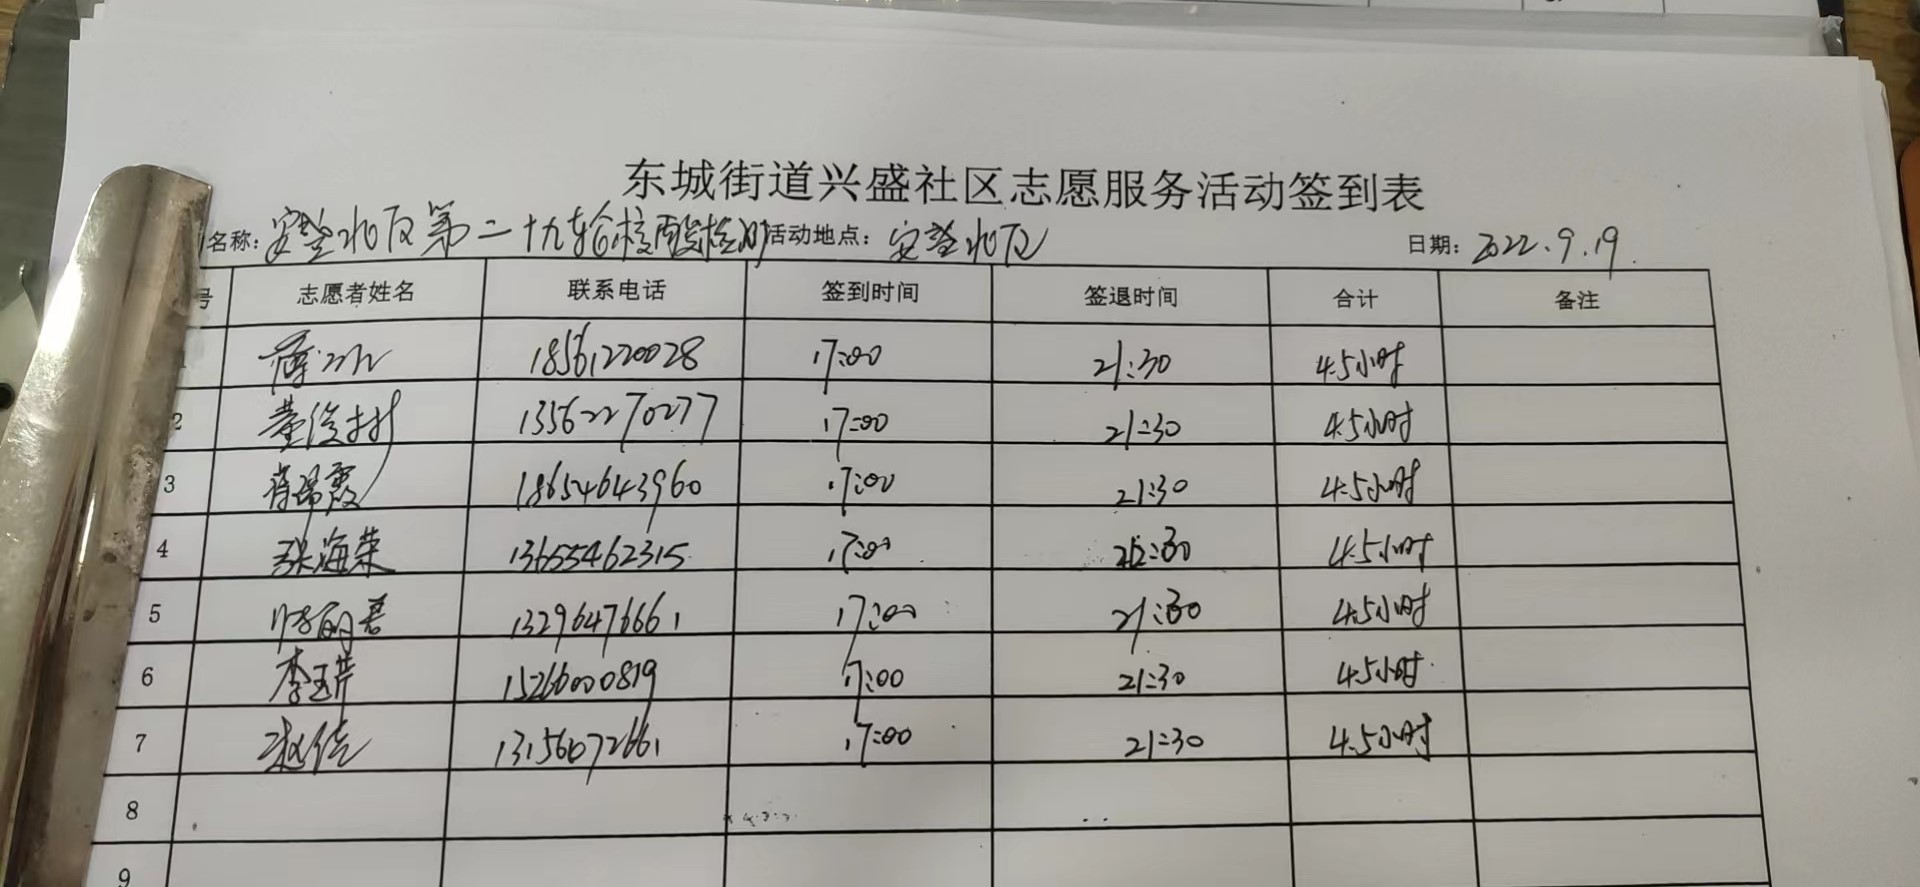 东城街道兴盛社区志愿服务活动签到表
名称: 安楚北区第二十九轮核酸检测 活动地点: 安楚北区 日期: 2022.9.19
号 志愿者姓名 联系电话 签到时间 签退时间 合计 备注
18561220028 17:00 21:30 4.5小时
2 董俊树 13562270277 17:00 21:30 4.5小时
3 肖瑞霞 18654643960 17:00 21:30 4.5小时
4 张海荣 13655462315 17:00 21:30 4.5小时
5 13296476661 17:00 21:30 4.5小时
6 李玉芹 15266000819 17:00 21:30 4.5小时
7 赵信 13156072661 17:00 21:30 4.5小时
8
9